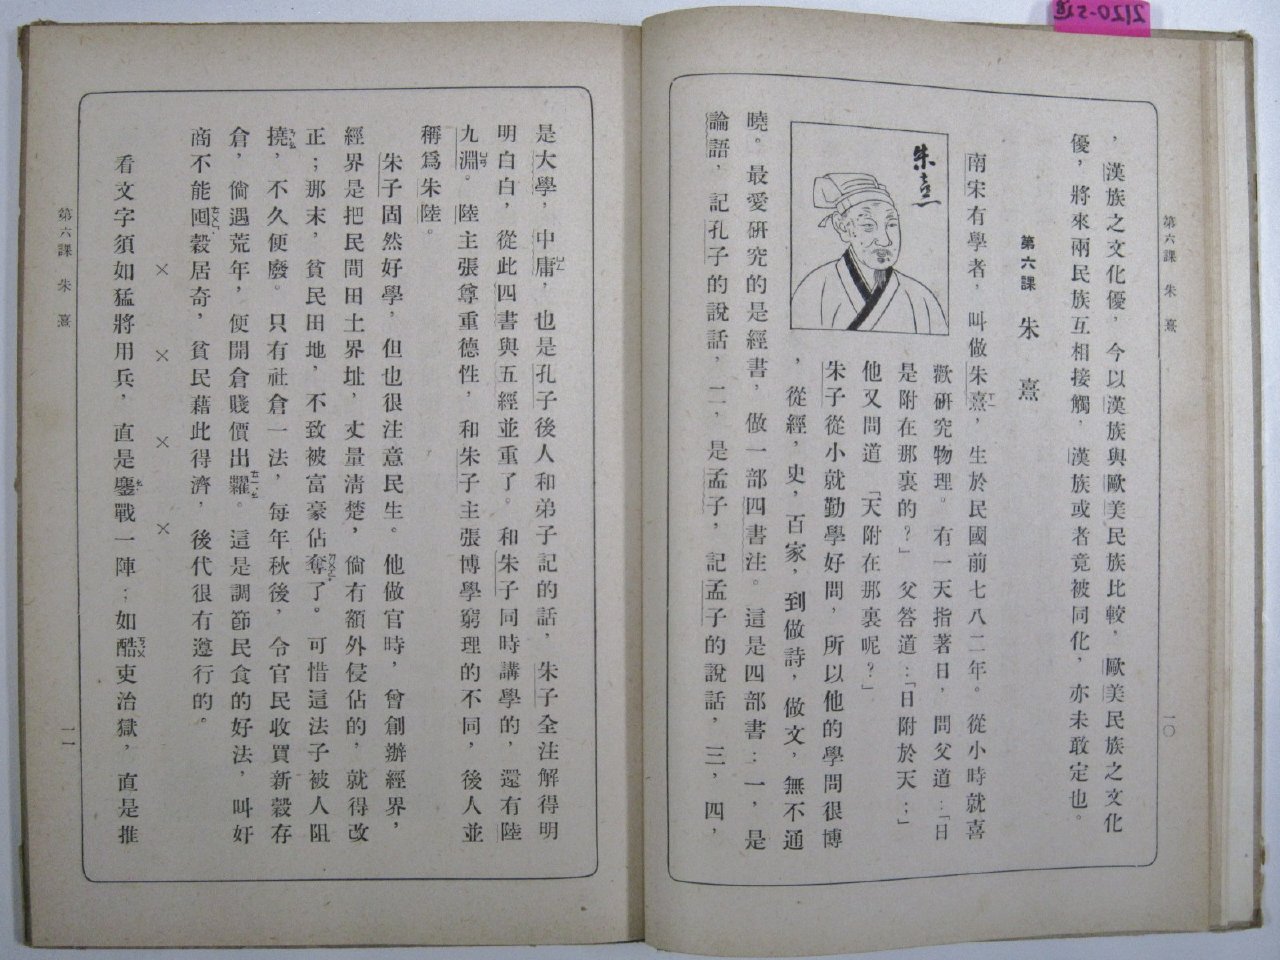 第六課 朱熹
一〇
，漢族之文化優，今以漢族與歐美民族比較，歐美民族之文化
優，將來兩民族互相接觸，漢族或者竟被同化，亦未敢定也。
第六課 朱熹
南宋有學者，叫做朱熹，生於民國前七八二年。從小時就喜
歡研究物理。有一天指著日，問父道：「日
是附在那裏的？」父答道：「日附於天；」
他又問道「天附在那裏呢？」
朱子從小就勤學好問，所以他的學問很博
，從經，史，百家，到做詩，做文，無不通
曉。最愛研究的是經書，做一部四書注。這是四部書：一，是
論語，記孔子的說話，二，是孟子，記孟子的說話，三，四，
朱熹
是大學，中庸，也是孔子後人和弟子記的話，朱子全注解得明
明白白，從此四書與五經並重了。和朱子同時講學的，還有陸
九淵。陸主張尊重德性，和朱子主張博學窮理的不同，後人並
稱爲朱陸。
朱子固然好學，但也很注意民生。他做官時，曾創辦經界，
經界是把民間田土界址，丈量清楚，倘有額外侵佔的，就得改
正；那末，貧民田地，不致被富豪佔奪了。可惜這法子被人阻
撓，不久便廢。只有社倉一法，每年秋後，令官民收買新穀存
倉，倘遇荒年，便開倉賤價出糶。這是調節民食的好法，叫奸
商不能囤穀居奇，貧民藉此得濟，後代很有遵行的。
× × × ×
看文字須如猛將用兵，直是鏖戰一陣；如酷吏治獄，直是推
第六課 朱熹
一一